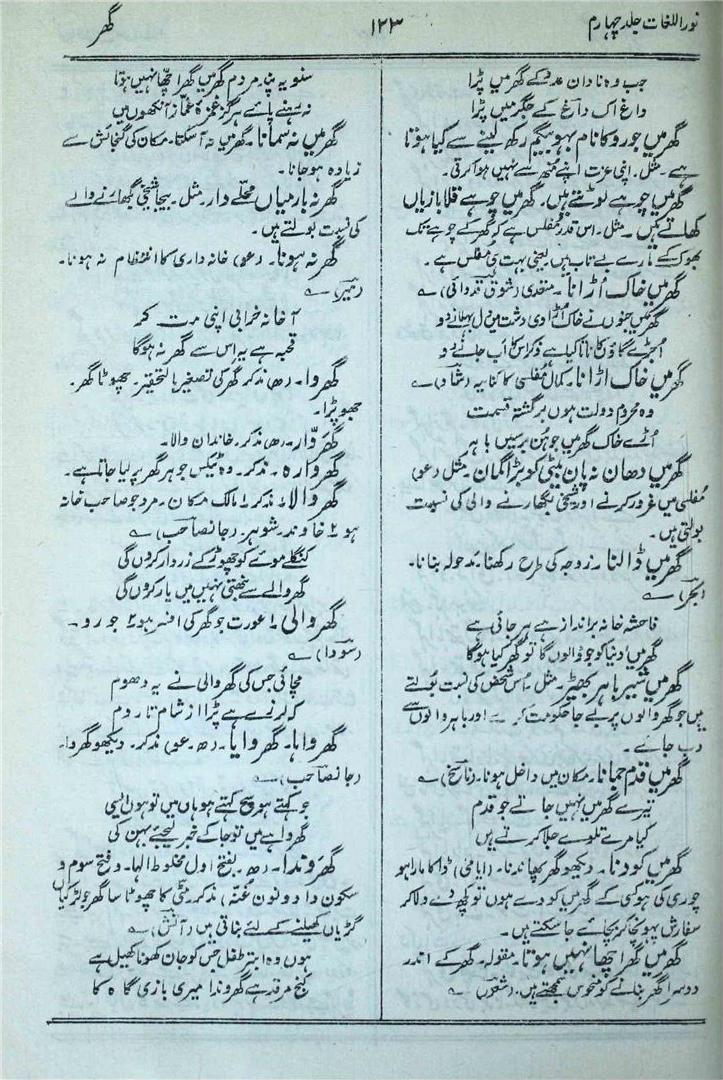 نوراللغات جلد چہارم
۱۲۳
گھر
جب وہ نادان عدو کے گھر میں پڑا
داغ اک داغ کے جگر میں پڑا
گھر میں جورو کا نام بہو بیگم رکھ لینے سے کیا ہوتا
ہے۔ مثل۔ اپنی عزت اپنے مُنھ سے نہیں ہوا کرتی۔
گھر میں چوہے لوٹتے ہیں۔ گھر میں چوہے قلابازیاں
کھاتے ہیں۔ مثل۔ اس قدر مُفلس ہے کہ گھر کے چوہے تک
بھوک کے مارے بے تاب ہیں یعنی بہت ہی مُفلس ہے۔
گھر میں خاک اُڑانا۔ متعدی (شوق قدوائی) ؎
گھر میں جنوں نے خاک اُڑا دی دشت میں دل بہلانے دو
اُجڑے گاؤں کا ناتا کیا ہے ذکر اس کا اب جانے دو
گھر میں خاک اڑانا۔ کمال مُفلسی کا کنایہ (شاد) ؎
وہ محروم دولت ہوں برگشتہ قسمت
اُڑے خاک گھر میں جو ہُن برسیں باہر
گھر میں دھان نہ پان بیٹی کو بڑا گمان۔ مثل (عو)
مُفلسی میں غرور کرنے اور شیخی بگھارنے والی کی نسبت
بولتی ہیں۔
گھر میں ڈالنا۔ زوجہ کی طرح رکھنا۔ مدخولہ بنانا۔
(بحر) ؎
فاحشہ خانہ برانداز ہے ہر جائی ہے
گھر میں دنیا کو جو ڈالوں گا تو گھر کیا ہوگا
گھر میں شیر باہر بھیڑ۔ مثل۔ اُس شخص کی نسبت بولتے
ہیں جو گھر والوں پر بے جا حکومت کرے اور باہر والوں سے
دب جائے۔
گھر میں قدم جمانا۔ مکان میں داخل ہونا۔ (ناسخ) ؎
تیرے گھر میں نہیں جاتے جو قدم
کیا مرے تلوے جلا کرتے ہیں
گھر میں کودنا۔ دیکھو گھر پھاندنا۔ (ایامیٰ) ڈاکا مارا ہو
چوری کی ہو کسی کے گھر میں کودے ہوں تو کچھ دے دلا کر
سفارش پہونچا کر بچائے جا سکتے ہیں۔
گھر میں گھر اچھا نہیں ہوتا۔ مقولہ۔ گھر کے اندر
دوسرا گھر بنانے کو منحوس سمجھتے ہیں۔ (شعور) ؎
سنو یہ بنا مردم گھر میں گھر اچھا نہیں ہوتا
نہ رہنے پائے ہرگز غمزۂ غماز آنکھوں میں
گھر میں نہ سمانا۔ گھر میں نہ آ سکنا۔ مکان کی گنجائش سے
زیادہ ہو جانا۔
گھر نہ بار میاں محلّے دار۔ مثل۔ بیجا شیخی بگھارنے والے
کی نسبت بولتے ہیں۔
گھر نہ ہونا۔ (عو) خانہ داری کا انتظام نہ ہونا۔
(میر) ؎
آ خانہ خرابی اپنی مت کر
قحبہ ہے یہ اس سے گھر نہ ہوگا
گھروا۔ (ھ) مذکر۔ گھر کی تصغیر بالتحقیر۔ چھوٹا گھر۔
جھونپڑا۔
گھروار۔ (ھ) مذکر۔ خاندان والا۔
گھروارہ۔ مذکر۔ وہ ٹیکس جو ہر گھر پر لیا جاتا ہے۔
گھر والا۔ مذکر ۱ مالک مکان۔ مرد جو صاحب خانہ
ہو ۲ خاوند۔ شوہر۔ (جانصاحب) ؎
کنگلے موئے کو چھوڑ کے زردار کروں گی
گھر والے سے نبھتی نہیں میں یار کروں گی
گھر والی۔ ۱ عورت جو گھر کی افسر ہو ۲ جورو۔
(سودا) ؎
مچائی جس کی گھر والی نے یہ دھوم
کہ لرزے ہے پڑا از شام تا روم
گھرواہا۔ گھروایا۔ (ھ۔ عو) مذکر۔ دیکھو گھروا۔
(جانصاحب) ؎
جو کہتے ہو سچ کہتے ہو ہاں میں تو ہوں ایسی
گھرواہے میں تو جا کے خبر لیجئے بہن کی
گھروندا۔ (ھ۔ بفتح اول مخلوط الہا۔ و فتح سوم و
سکون واو و نون غنّہ) مذکر۔ مٹی کا چھوٹا سا گھر جو لڑکیاں
گڑیاں کھیلنے کے لئے بناتی ہیں (آتش) ؎
ہوں وہ ابتر طفل جس کو جان کھونا کھیل ہے
کنج مرقد ہے گھروندا میری بازی گاہ کا